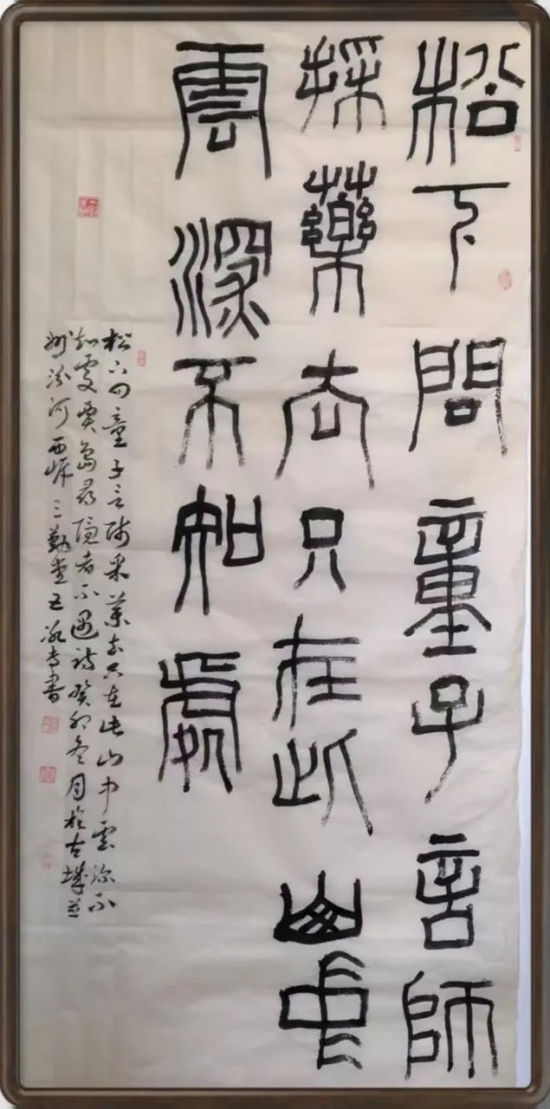 松下問童子言師
採藥去只在此山中
雲深不知處
松下问童子言师采药去只在此山中雲深不
知处贾岛尋隐者不遇诗癸卯冬月於古城并
州汾河西岸三勤堂王书